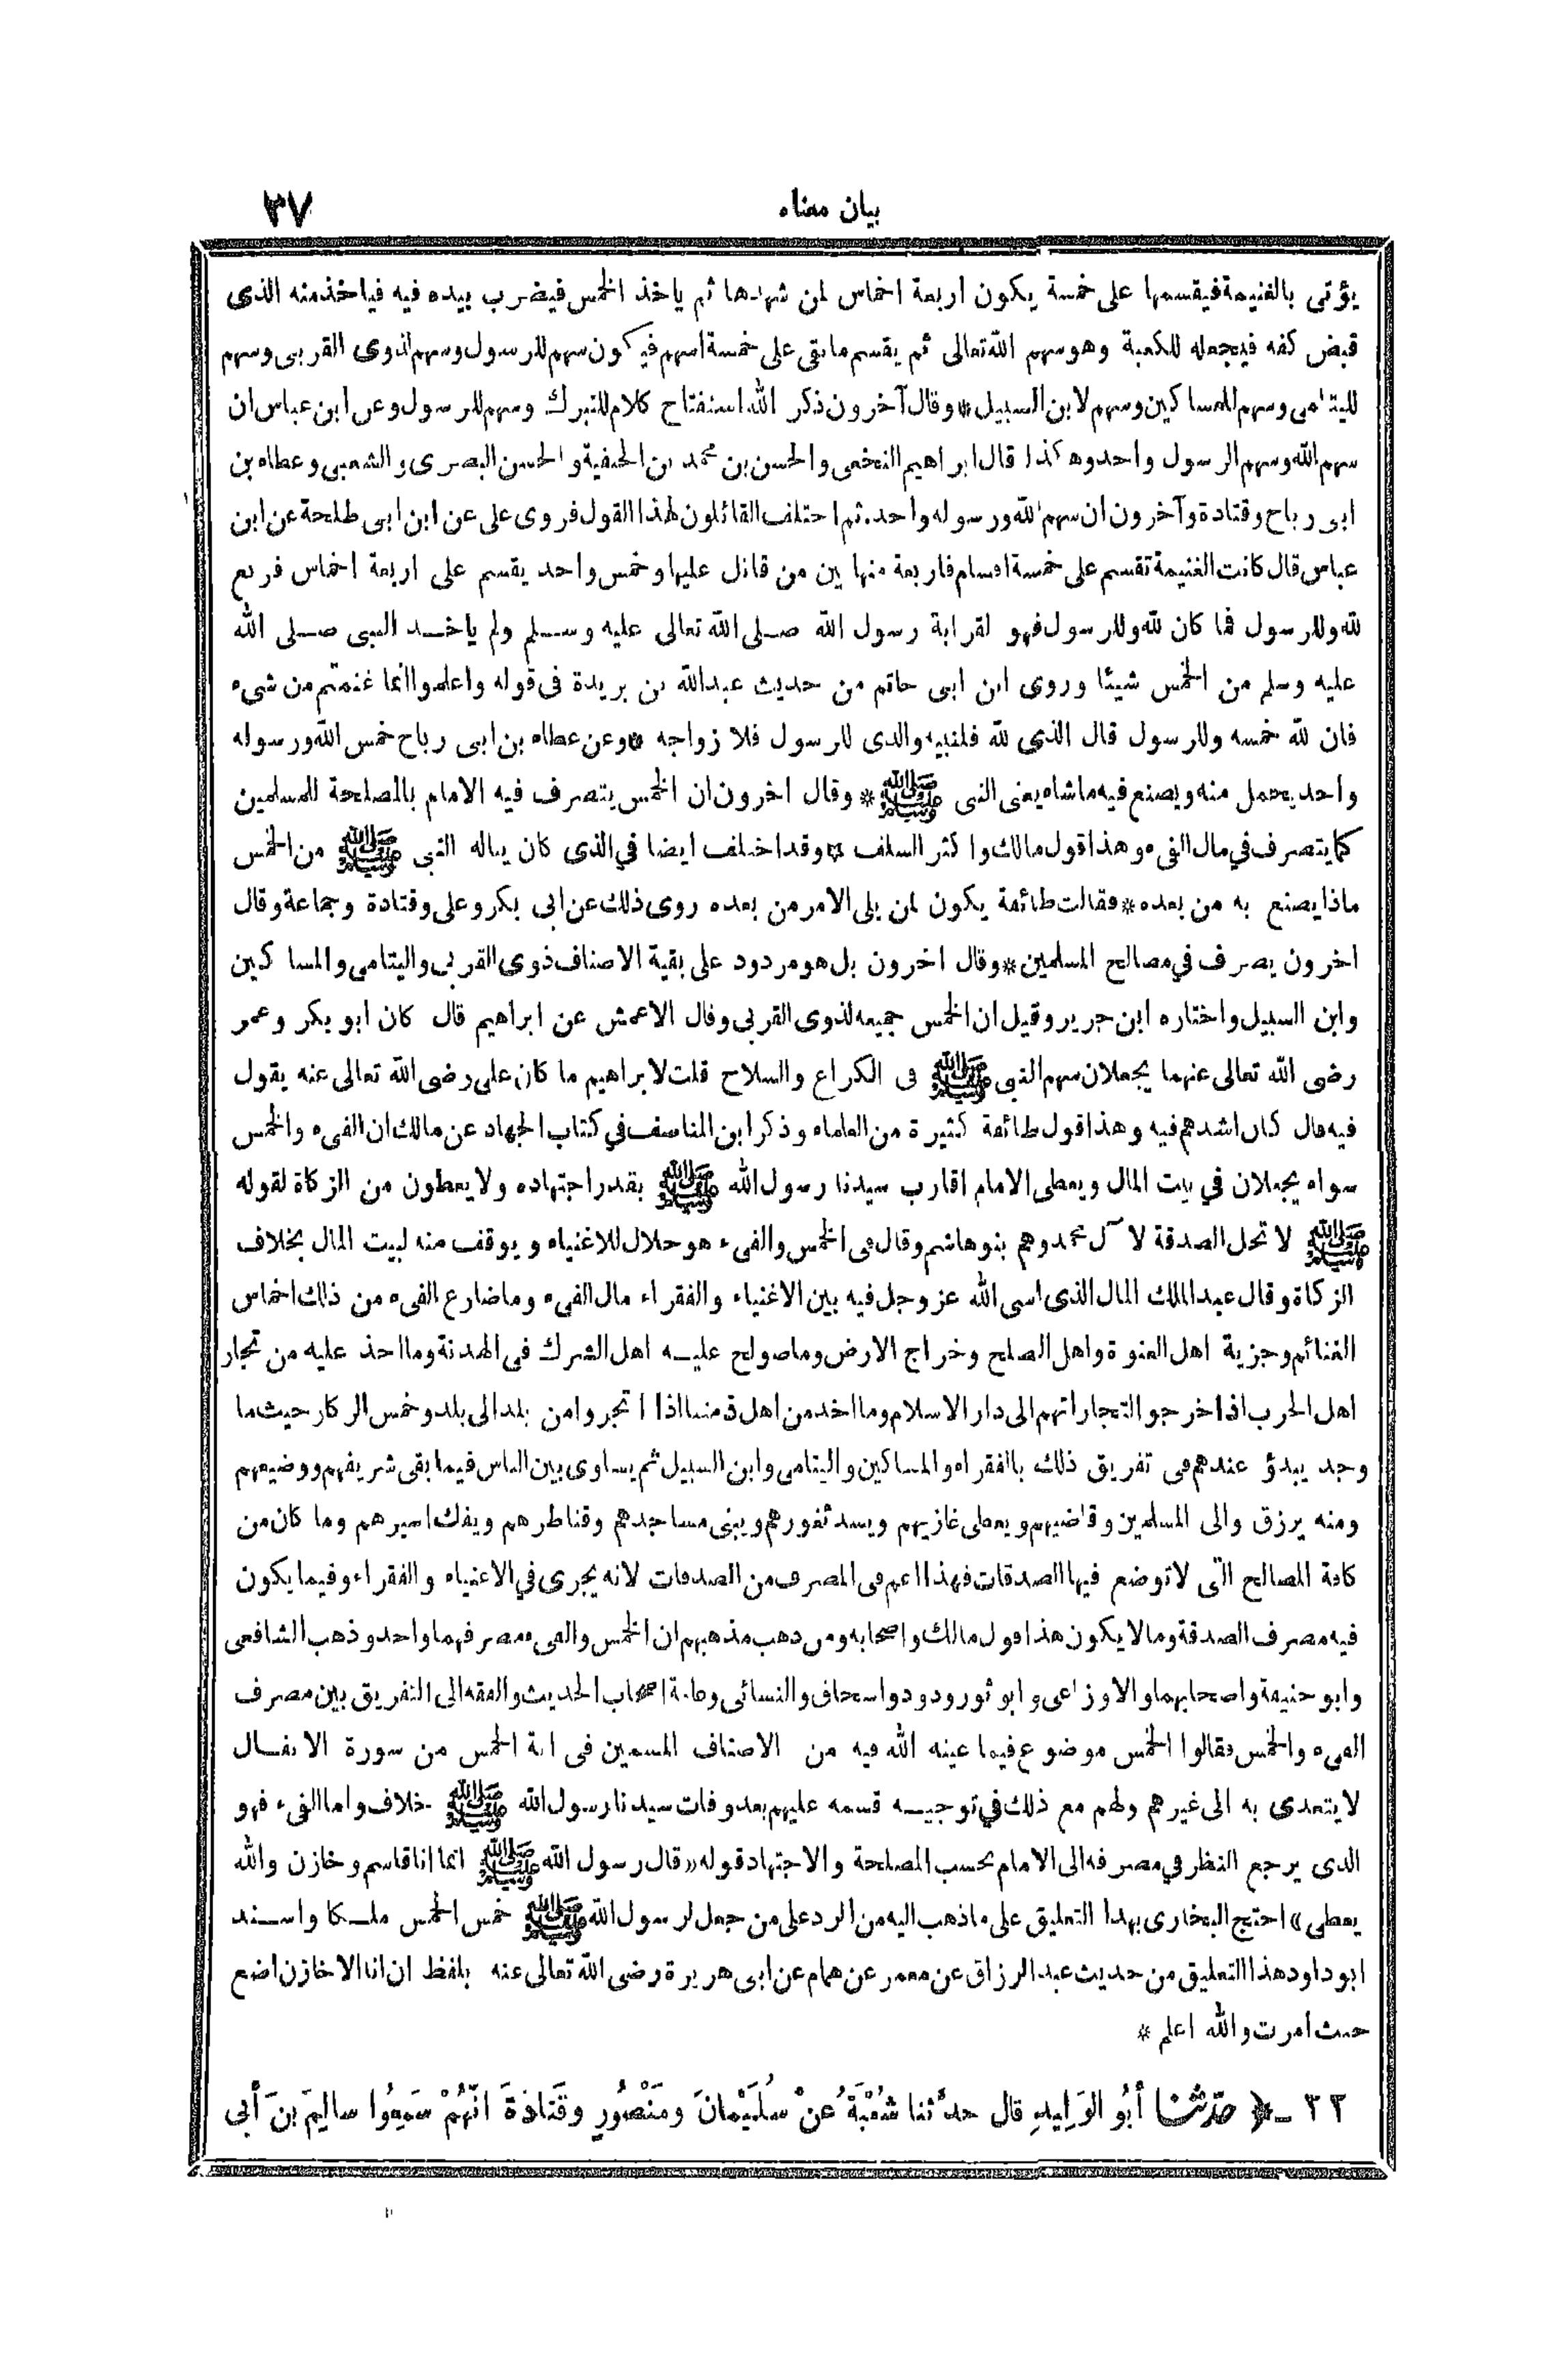 بيان معناه ٣٧
يؤتى بالغنيمة فيقسمها على خمسة يكون اربعة اخماس لمن شهدها ثم ياخذ الخمس فيضرب بيده فيه فياخذ منه الذى
قبض كفه فيجعله للكعبة وهو سهم الله تعالى ثم يقسم ما بقى على خمسة اسهم فيكون سهم للرسول وسهم لذوى القربى وسهم
لليتامى وسهم للمساكين وسهم لابن السبيل * وقال آخرون ذكر الله استفتاح كلام للتبرك وسهم للرسول وعن ابن عباس ان
سهم الله وسهم الرسول واحد وهكذا قال ابراهيم النخعى والحسن بن محمد بن الحنفية والحسن البصرى والشعبى وعطاء بن
ابى رباح وقتادة وآخرون ان سهم الله ورسوله واحد. ثم اختلف القائلون لهذا القول فروى على عن ابن ابى طلحة عن ابن
عباس قال كانت الغنيمة تقسم على خمسة اقسام فاربعة منها بين من قاتل عليها وخمس واحد يقسم على اربعة اخماس فربع
لله وللرسول فما كان لله وللرسول فهو لقرابة رسول الله صلى الله تعالى عليه وسلم ولم ياخذ النبى صلى الله
عليه وسلم من الخمس شيئا وروى ابن ابى حاتم من حديث عبد الله بن بريدة فى قوله واعلموا انما غنمتم من شىء
فان لله خمسه وللرسول قال الذى لله فلنبيه والذى للرسول فلازواجه * وعن عطاء بن ابى رباح خمس الله ورسوله
واحد يحمل منه ويصنع فيه ما شاء يعنى النبى ﷺ * وقال اخرون ان الخمس يتصرف فيه الامام بالمصلحة للمسلمين
كما يتصرف في مال الفىء وهذا قول مالك واكثر السلف * وقد اختلف ايضا في الذى كان يناله النبى ﷺ من الخمس
ماذا يصنع به من بعده * فقالت طائفة يكون لمن يلى الامر من بعده روى ذلك عن ابى بكر وعلى وقتادة وجماعة وقال
اخرون يصرف في مصالح المسلمين * وقال اخرون بل هو مردود على بقية الاصناف ذوى القربى واليتامى والمساكين
وابن السبيل واختاره ابن جرير وقيل ان الخمس جميعه لذوى القربى وقال الاعمش عن ابراهيم قال كان ابو بكر وعمر
رضى الله تعالى عنهما يجعلان سهم النبى ﷺ فى الكراع والسلاح قلت لابراهيم ما كان على رضى الله تعالى عنه يقول
فيه قال كان اشدهم فيه وهذا قول طائفة كثيرة من العلماء وذكر ابن المناصف في كتاب الجهاد عن مالك ان الفىء والخمس
سواء يجعلان في بيت المال ويعطى الامام اقارب سيدنا رسول الله ﷺ بقدر اجتهاده ولا يعطون من الزكاة لقوله
ﷺ لا تحل الصدقة لآل محمد وهم بنو هاشم وقال فى الخمس والفىء هو حلال للاغنياء ويوقف منه لبيت المال بخلاف
الزكاة وقال عبد الملك المال الذى اسى الله عز وجل فيه بين الاغنياء والفقراء مال الفىء وما ضارع الفىء من ذلك اخماس
الغنائم وجزية اهل العنوة واهل الصلح وخراج الارض وما صولح عليه اهل الشرك فى الهدنة وما اخذ عليه من تجار
اهل الحرب اذا خرجوا لتجاراتهم الى دار الاسلام وما اخذ من اهل ذمتنا اذا اتجروا من بلد الى بلد وخمس الركاز حيث ما
وجد يبدؤ عندهم فى تفريق ذلك بالفقراء والمساكين واليتامى وابن السبيل ثم يساوى بين الناس فيما بقى شريفهم ووضيعهم
ومنه يرزق والى المسلمين وقاضيهم ويعطى غازيهم ويسد ثغورهم ويبنى مساجدهم وقناطرهم ويفك اسيرهم وما كان من
كافة المصالح التى لا توضع فيها الصدقات فهذا اعم فى المصرف من الصدقات لانه يجرى في الاغنياء والفقراء وفيما يكون
فيه مصرف الصدقة وما لا يكون هذا قول مالك واصحابه ومن ذهب مذهبهم ان الخمس والفىء مصرفهما واحد وذهب الشافعى
وابو حنيفة واصحابهما والاوزاعى وابو ثور ودود واسحاق والنسائى وعامة اصحاب الحديث والفقه الى التفريق بين مصرف
الفىء والخمس فقالوا الخمس موضوع فيما عينه الله فيه من الاصناف المسمين فى اية الخمس من سورة الانفال
لا يتعدى به الى غيرهم ولهم مع ذلك في توجيه قسمه عليهم بعد وفات سيدنا رسول الله ﷺ خلاف واما الفىء فهو
الذى يرجع النظر في مصرفه الى الامام بحسب المصلحة والاجتهاد قوله «قال رسول الله ﷺ انما انا قاسم وخازن والله
يعطى» احتج البخارى بهذا التعليق على ما ذهب اليه من الرد على من جعل لرسول الله ﷺ خمس الخمس ملكا واسند
ابو داود هذا التعليق من حديث عبد الرزاق عن معمر عن همام عن ابى هريرة رضى الله تعالى عنه بلفظ ان انا الا خازن اضع
حيث امرت والله اعلم *
٢٢ - ﴿ حدّثنا أبُو الوَلِيدِ قال حدّثنا شُعْبَةُ عنْ سُلَيْمانَ ومَنْصُورٍ وقَتَادَةَ انَّهُمْ سَمِعُوا سالِمَ بنَ أبي